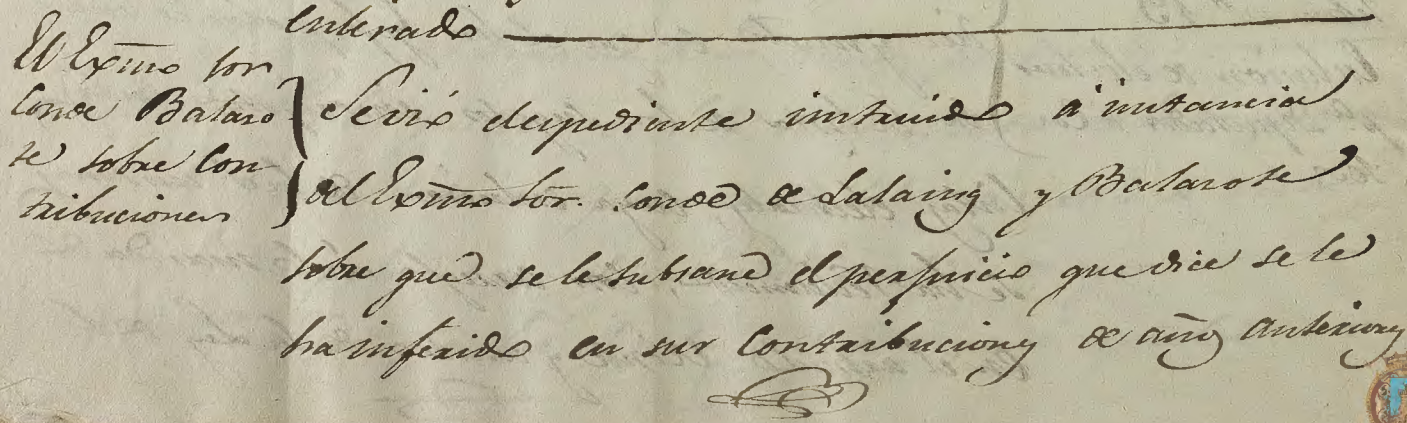 enterado
El Exmo sor
Conde Balaso
te sobre Con
tribuciones
Se vió el espediente instruido á instancia
del Exmo Sor. Conde de Lalaing y Balasote
sobre que se le subsane el perjuicio que dice se le
ha inferido en sus Contribuciones de años anteriores